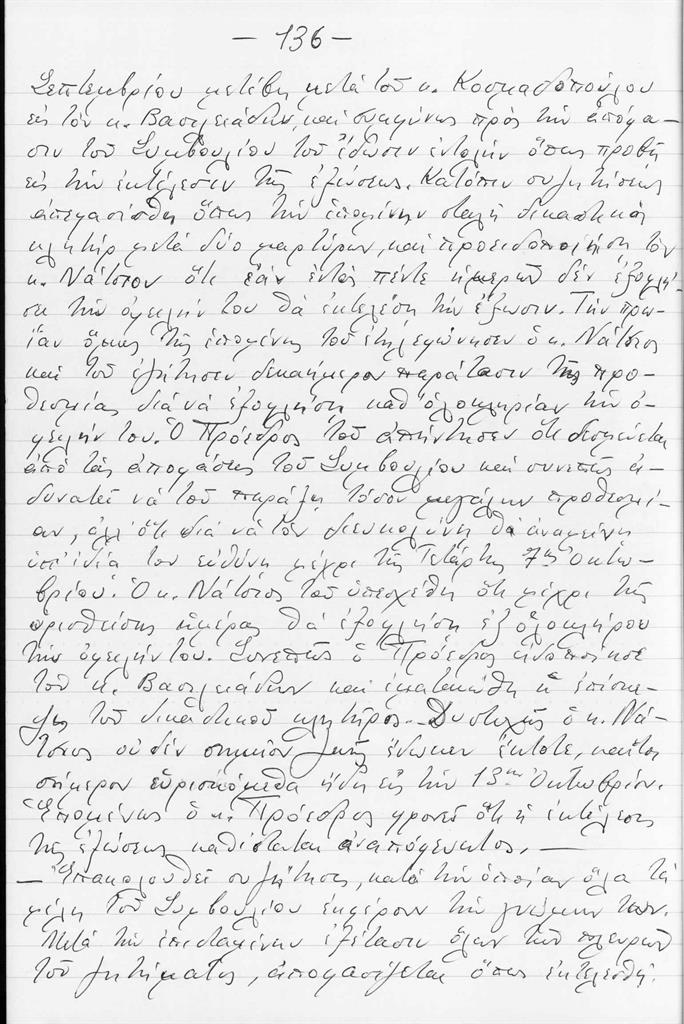 — 136 —
Σεπτεμβρίου μετέβη μετά τοῦ κ. Κοσμαδοπούλου
εἰς τόν κ. Βασιλειάδην, καί συμφώνως πρός τήν ἀπόφα-
σιν τοῦ Συμβουλίου τοῦ ἔδωσεν ἐντολήν ὅπως προβῇ
εἰς τήν ἐκτέλεσιν τῆς ἐξώσεως. Κατόπιν συζητήσεως
ἀπεφασίσθη ὅπως τήν ἑπομένην σταλῇ δικαστικός
κλητήρ μετά δύο μαρτύρων, καί προειδοποιήσῃ τόν
κ. Νάτσιον ὅτι ἐάν ἐντός πέντε ἡμερῶν δέν ἐξοφλή-
σῃ τήν ὀφειλήν του θά ἐκτελέσῃ τήν ἔξωσιν. Τήν πρω-
ΐαν ὅμως τῆς ἑπομένης τοῦ ἐτηλεφώνησεν ὁ κ. Νάτσιος
καί τοῦ ἐζήτησεν δεκαήμερον παράτασιν τῆς προ-
θεσμίας διά νά ἐξοφλήσῃ καθ' ὁλοκληρίαν τήν ὀ-
φειλήν του. Ὁ Πρόεδρος τοῦ ἀπήντησεν ὅτι δεσμεύεται
ἀπό τάς ἀποφάσεις τοῦ Συμβουλίου καί συνεπῶς ἀ-
δυνατεῖ νά τοῦ παράξῃ τόσον μεγάλην προθεσμί-
αν, ἀλλ' ὅτι διά νά τόν διευκολύνῃ θά ἀναμείνῃ
ὑπ' ἰδίαν του εὐθύνη μέχρι τῆς Τετάρτης 7ης Ὀκτω-
βρίου. Ὁ κ. Νάτσιος τοῦ ὑπεσχέθη ὅτι μέχρι τῆς
ὁρισθείσης ἡμέρας θά ἐξοφλήσῃ ἐξ ὁλοκλήρου
τήν ὀφειλήν του. Συνεπῶς ὁ Πρόεδρος εἰδοποίησε
τόν κ. Βασιλειάδην καί ἐματαιώθη ἡ ἐπίσκε-
ψις τοῦ δικαστικοῦ κλητῆρος.— Δυστυχῶς ὁ κ. Νά-
τσιος οὐδέν σημεῖον ζωῆς ἔδωκεν ἔκτοτε, καίτοι
σήμερον εὑρισκόμεθα ἤδη εἰς τήν 13ην Ὀκτωβρίου.
Ἑπομένως ὁ κ. Πρόεδρος φρονεῖ ὅτι ἡ ἐκτέλεσις
τῆς ἐξώσεως καθίσταται ἀναπόφευκτος. —
— Ἐπακολουθεῖ συζήτησις, κατά τήν ὁποίαν ὅλα τά
μέλη τοῦ Συμβουλίου ἐκφέρουν τήν γνώμην των.
Μετά τήν ἐπισταμένην ἐξέτασιν ὅλων τῶν πλευρῶν
τοῦ ζητήματος, ἀποφασίζεται ὅπως ἐκτελεσθῇ